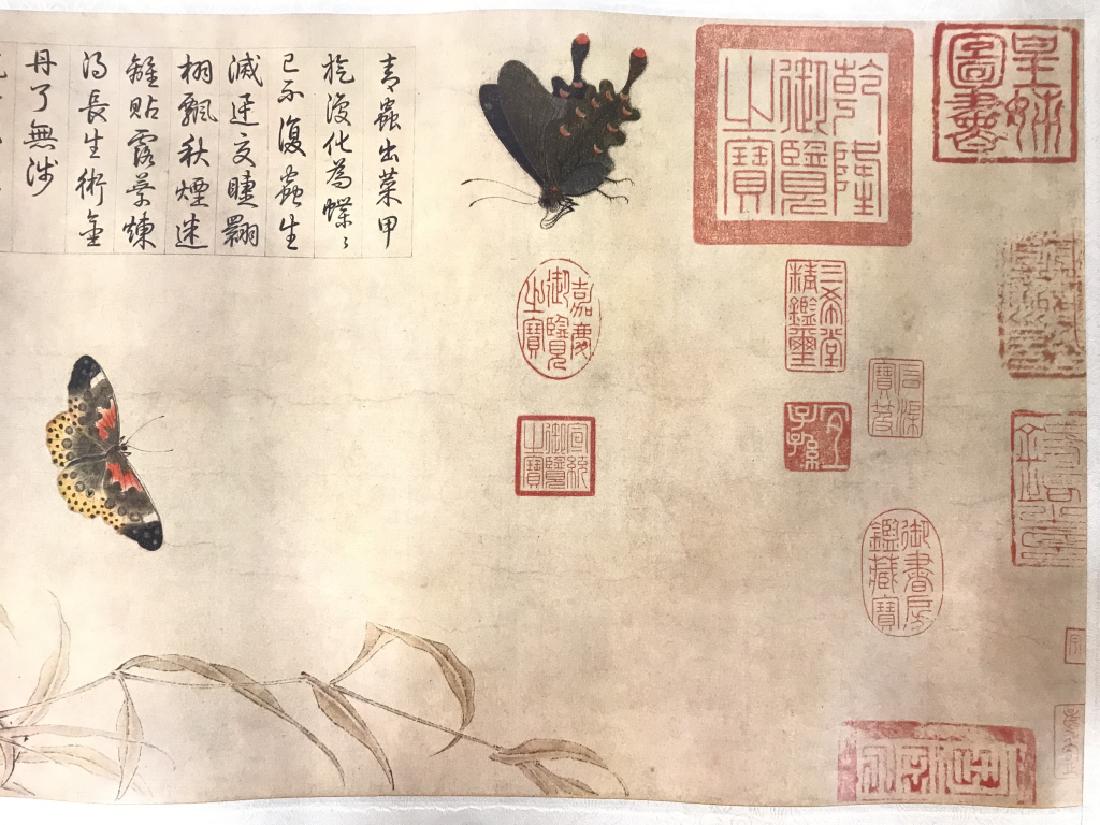 皇姊圖書
乾隆御覽之寶
三希堂精鑑璽
石渠寶笈
宜子孫
御書房鑑藏寶
嘉慶御覽之寶
宣統御覽之寶
青蟲出菜甲
旋復化為蝶〻
已不復蟲生
滅迅交睫翾
栩飄秋煙迷
離貼露葉煉
得長生術金
丹了無涉